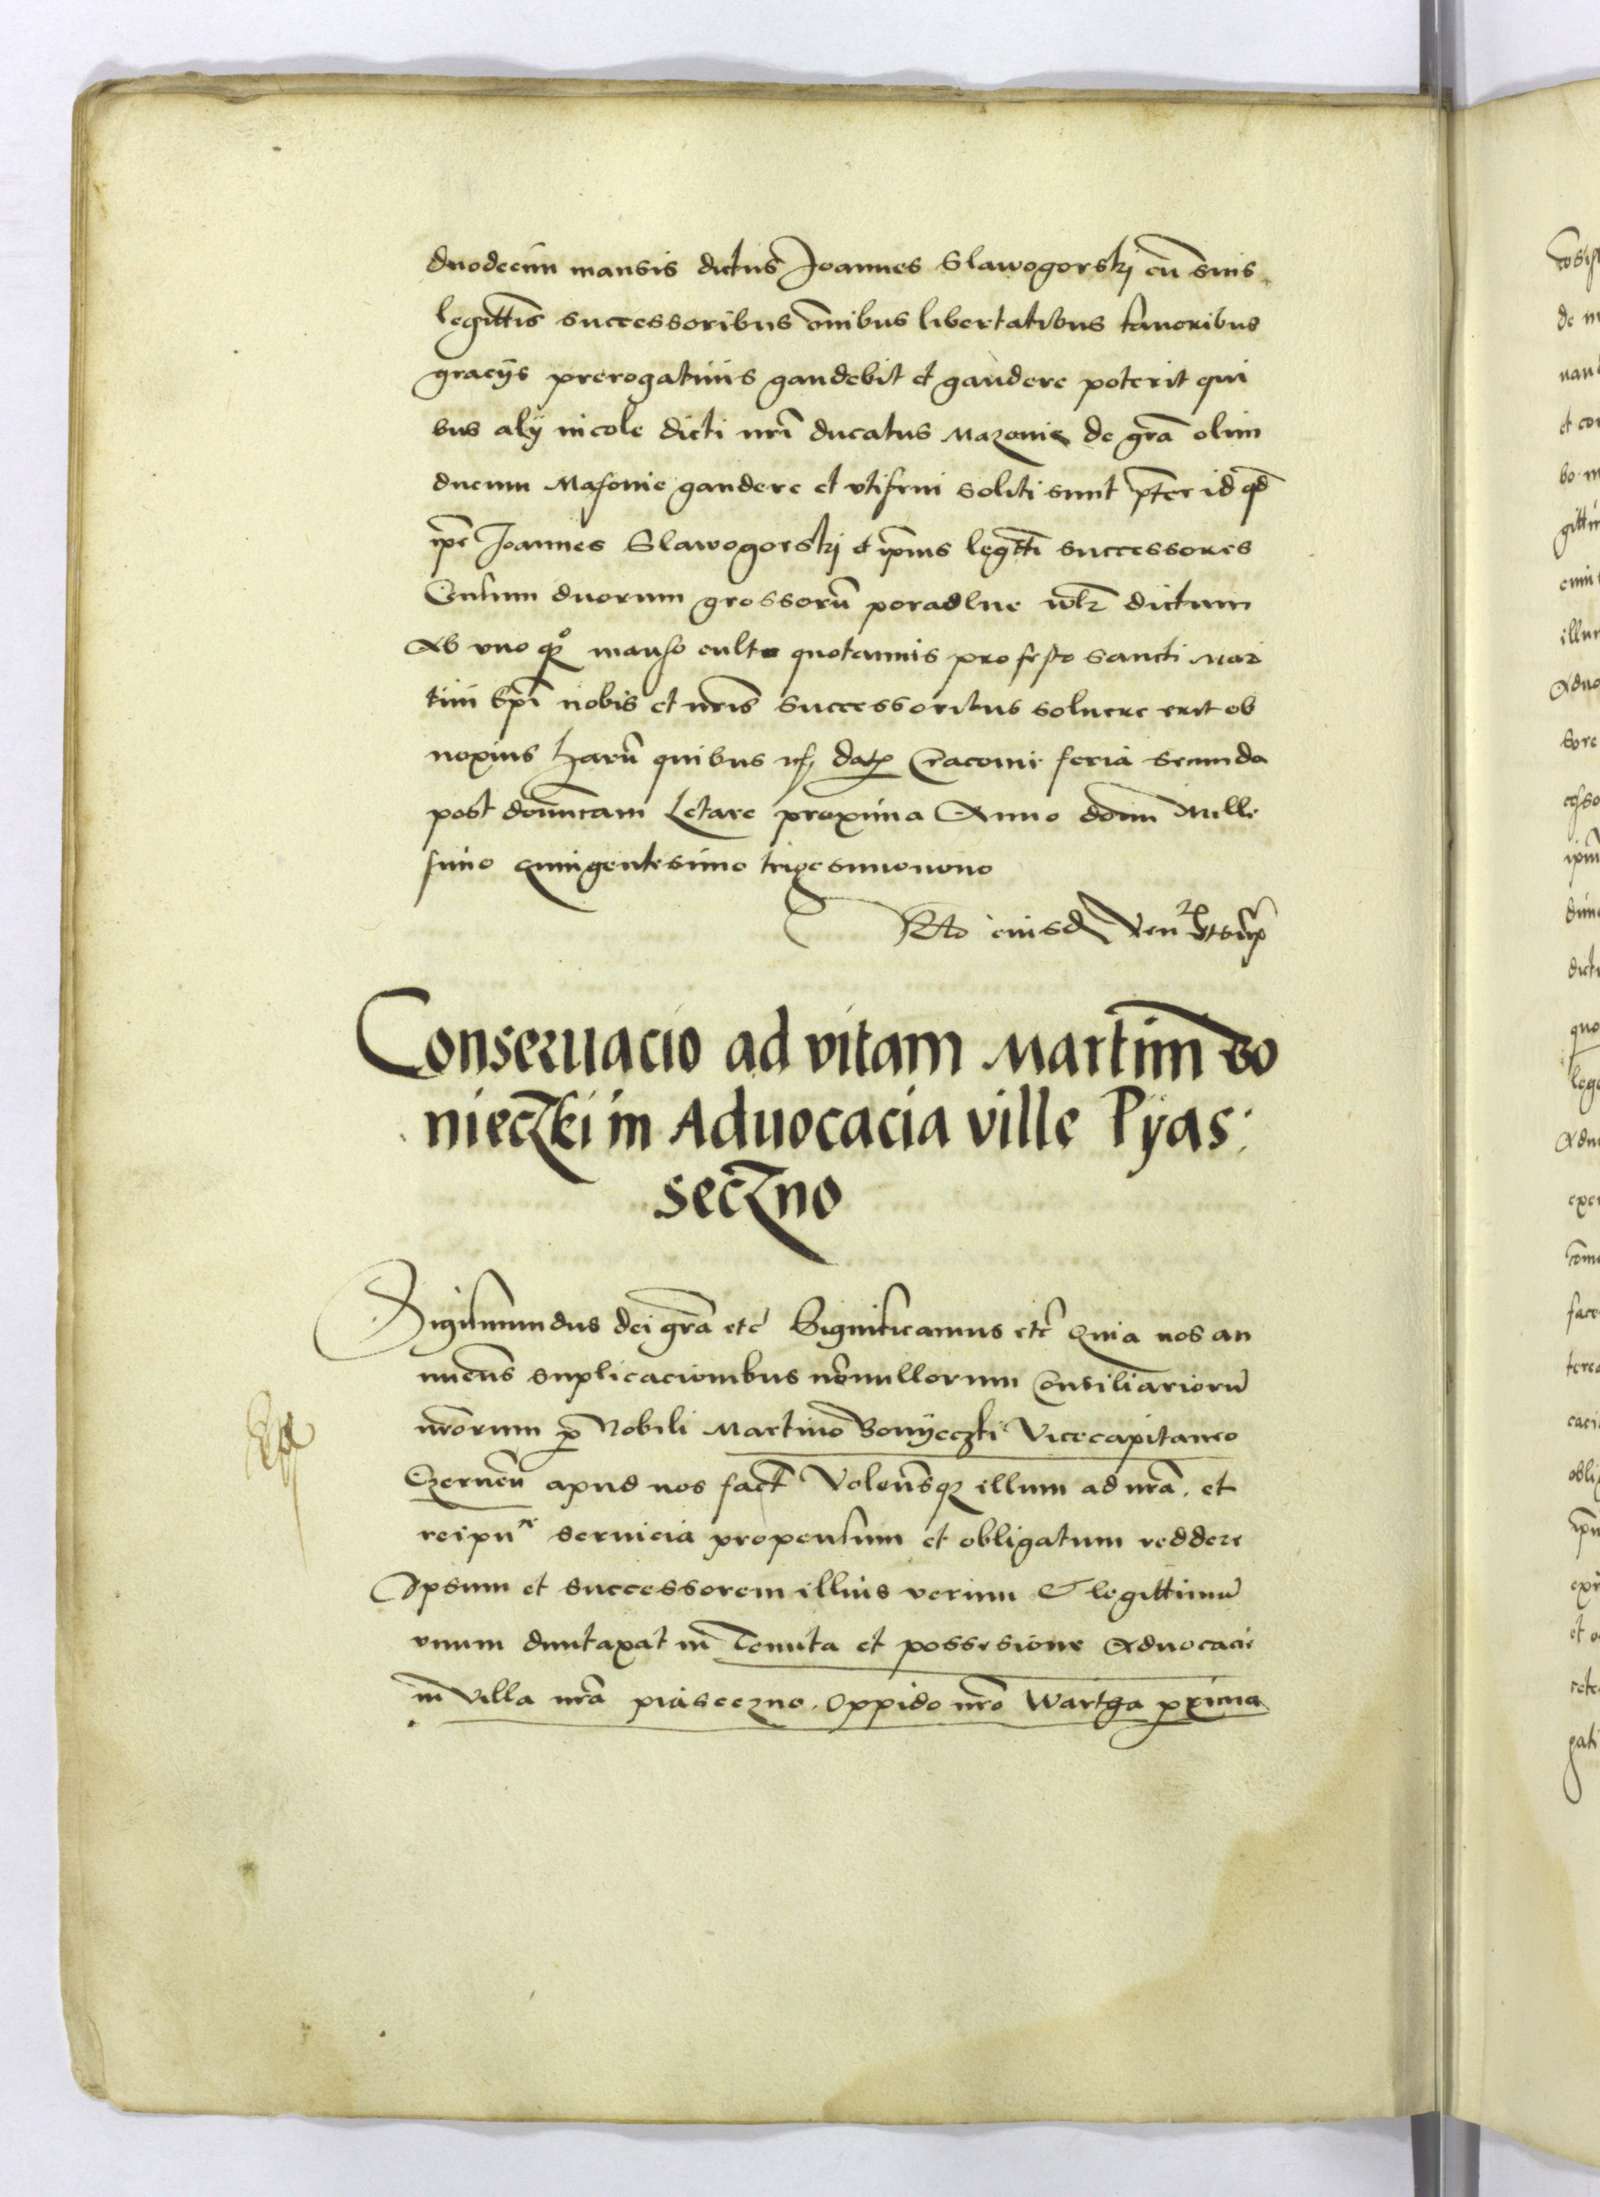 duodecim mansis dictus Joannes Slawogorskj cū suis
legittīs successoribus oĩnibus libertatibus fauoribus
gracijs prerogatiuis gaudebit et gaudere poterit qui
bus alij incole dicti nrĩ ducatus Mazouie de grā olim
ducum Masouie gaudere et vtifrui soliti sunt p̄ter id qd̄
ip̄e Joannes Slawogorskj et ip̄ius legtt̄i successores
Censum duorum grossorū poradlne wlr̄ dictum
Ab vno qꝫ manso culto quotannis pro festo sancti Mar
tini Ep̄i nobis et nrīs successoribus soluere erit ob
noxius harū quibus dat Cracouie feria secunda
post dominicam Letare proxima Anno domī Mille
simo quingentesimo trigesimonono
Rto eiusd Ven vtsup̄
Conseruacio ad vitam Martini Bo
nieczki in Aduocacia ville Pyas:
seczno
Sigismundus dei grā etc̄ Significamus etc̄ Quia nos an
nuen̄s suplicacionibus nōnullorum Consiliariorū
nr̄orum ꝓ Nobili Martino Bonyeczki Vicecapitaneo
Czernen̄ apud nos fact̄ Volen̄sqꝫ illum ad nr̄a et
reipu͞ce seruicia propensum et obligatum reddere
Ipsum et successorem illius verum et legittimū
vnum duntaxat in Tenuta et possesione Aduocacie
in villa nr̄a piaseczno Oppido nr̄o Wartga ꝓxima